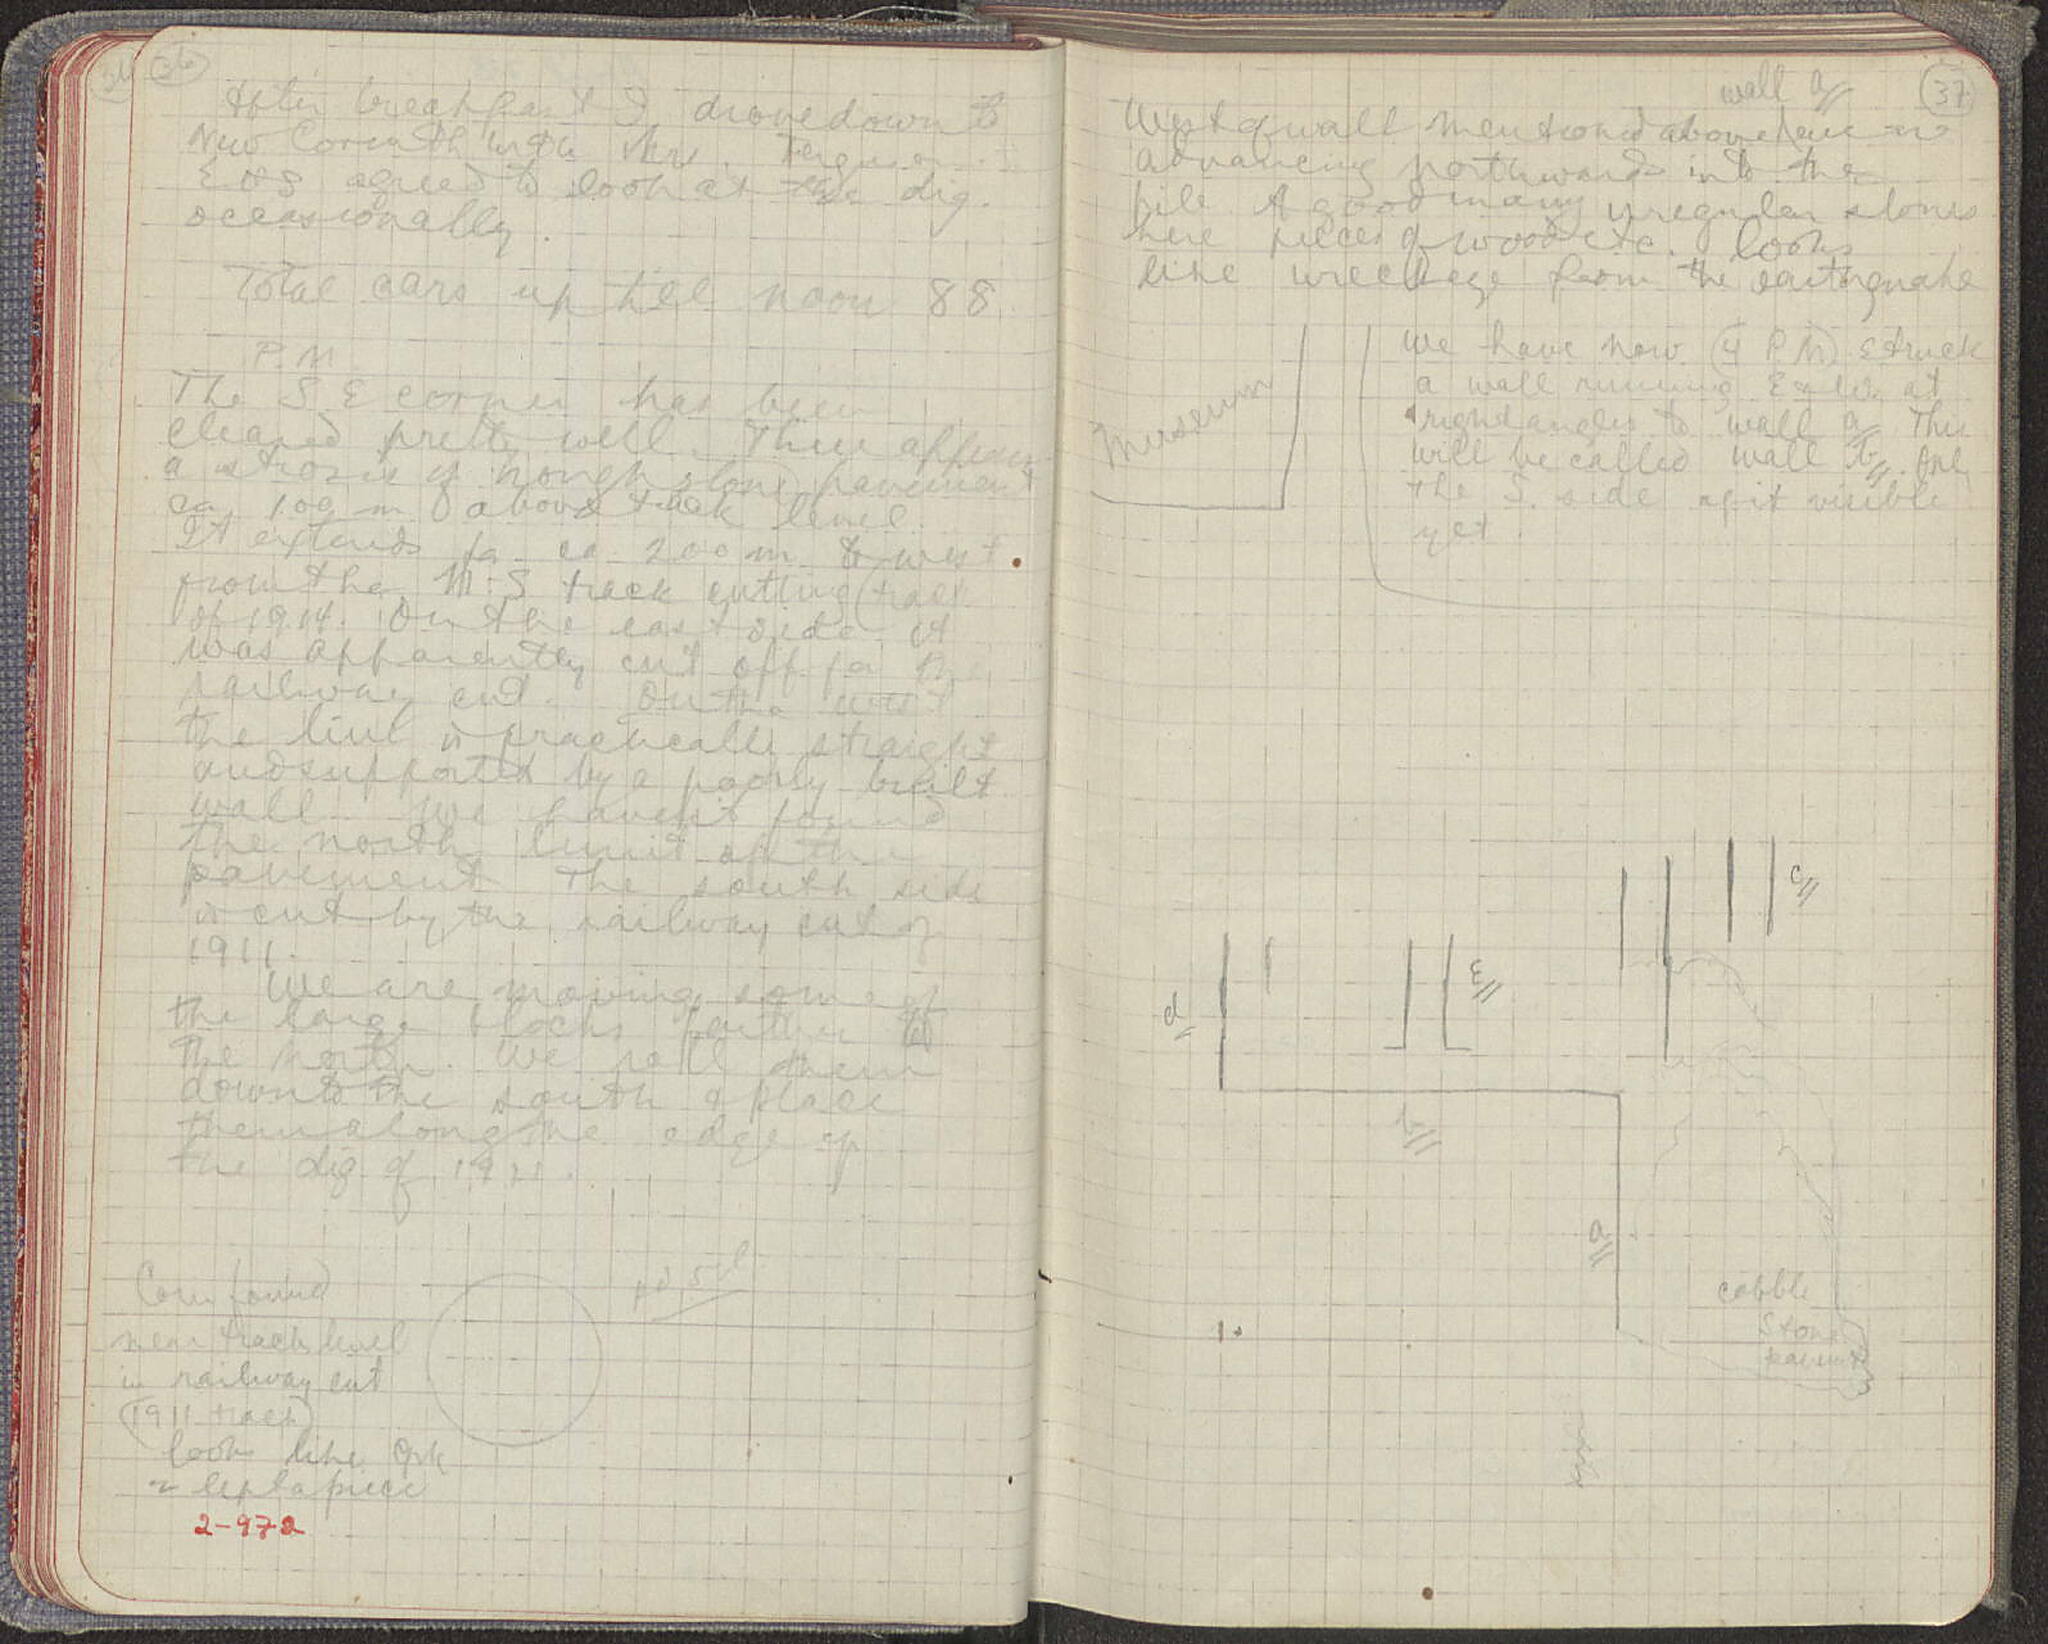 36
After breakfast I drove down to
New Corinth with Mr. Ferguson.
agreed to look at the dig.
occasionally.
Total cars up till noon 88.
P.M.
The S E corner has been
cleared pretty well. There appears
a of rough stone pavement
ca. 1.00 m above track level.
It extends for ca. 2.00 m to west
from the N-S track cutting (track
of 1914. On the east side it
was apparently cut off for the
railway cut. On the west
the limit is practically straight
and supported by a poorly built
wall. We haven't found
the north limit of the
pavement. The south side
is cut by the railway cut of
1911.
We are moving some of
the large blocks further to
the north. We roll them
down to the south & place
them along the edge of
the dig of 1911.
Coin found
near track level
in railway cut
(1911 track)
looks like
lepta piece
2-972
37
wall a
West of wall mentioned above
advancing northwards into the
pile. A good many irregular stones
here pieces of wood etc. looks
like wreckage from the earthquake
Museum
We have now (4 P.M.) struck
a wall running E & W. at
right angles to wall a. This
will be called wall b. Only
the S. side of it visible
yet.
c
E
d
b
a
cobble
stone
pavemt